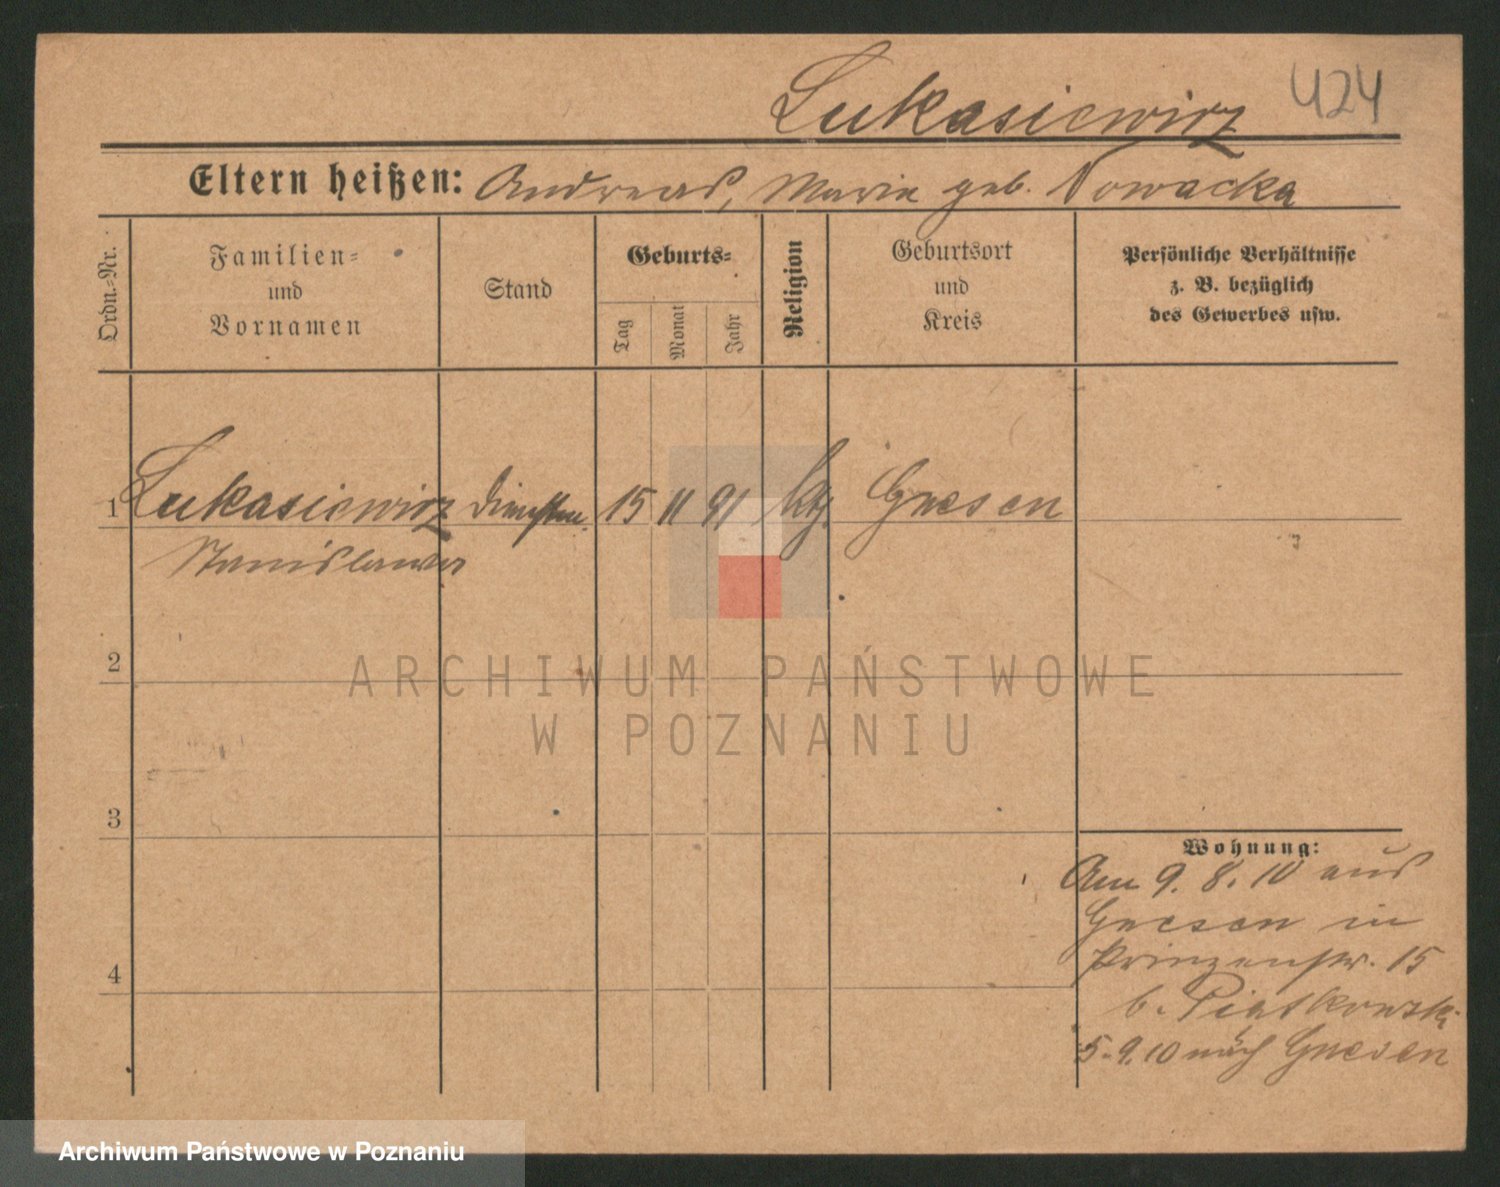 Lukasiewicz 424
Eltern heißen: Andreas, Marie geb. Nowacka
Ordn.-Nr.
Familien-
und
Vornamen
Stand
Geburts-
Tag
Monat
Jahr
Religion
Geburtsort
und
Kreis
Persönliche Verhältnisse
z. B. bezüglich
des Gewerbes usw.
1 Lukasiewicz Dienstm. 15 11 91 kth. Gnesen
Stanislawa
2
ARCHIWUM PAŃSTWOWE
W POZNANIU
3
Wohnung:
Am 9. 8. 10 aus
Gnesen in
Prinzenstr. 15
b. Piatkowski
4
5.9.10 nach Gnesen
Archiwum Państwowe w Poznaniu